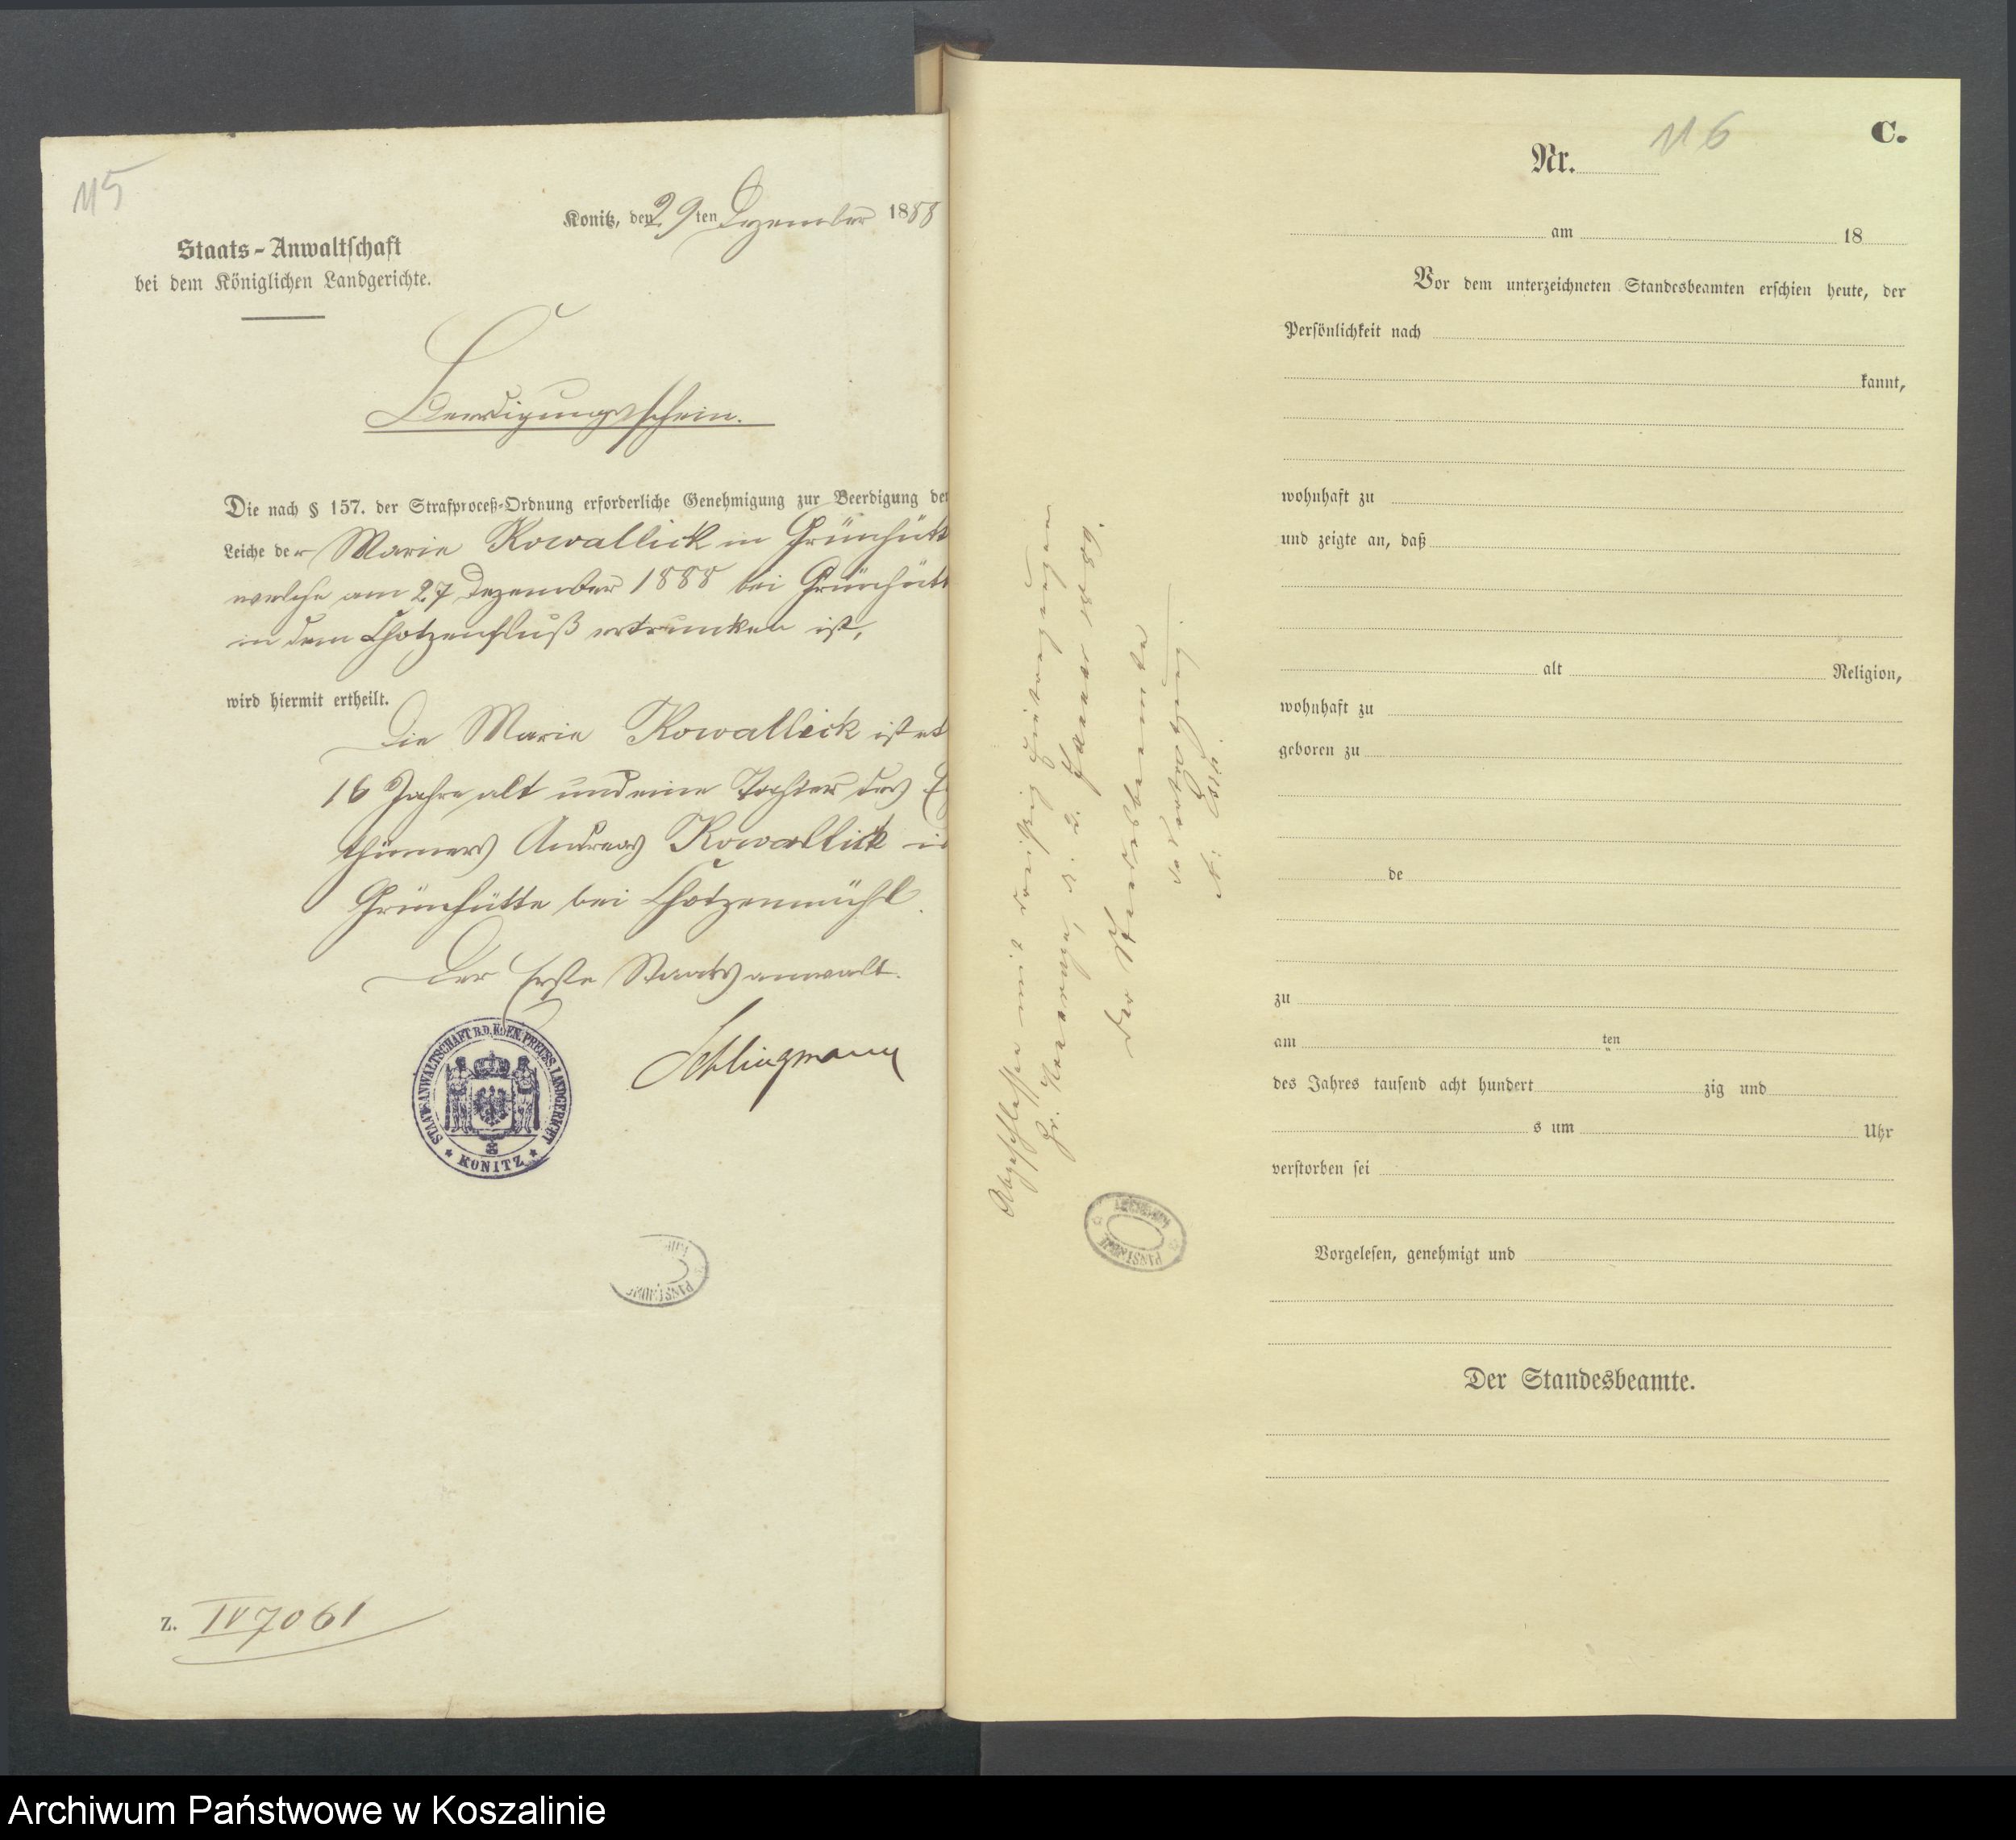 115
Konitz, den 29ten Dezember 1888
Staats-Anwaltschaft
bei dem Königlichen Landgerichte.
Beerdigungsschein.
Die nach § 157. der Strafproceß-Ordnung erforderliche Genehmigung zur Beerdigung der
Leiche der Marie Kowallick in Grünhütt
welche am 27 Dezember 1888 bei Grünhütt
in dem Chotzenfluß ertrunken ist,
wird hiermit ertheilt.
Die Marie Kowallick ist et
16 Jahre alt und eine Tochter des Ei
thümers Andreas Kowallick in
Grünhütte bei Chotzenmühl.
Der Erste Staatsanwalt.
Schlingmann
STAATSANWALTSCHAFT B.D. KOEN. PREUSS. LANDGERICHT
* KONITZ *
Z. IV 7061
116
C.
Nr.
am 18
Vor dem unterzeichneten Standesbeamten erschien heute, der
Persönlichkeit nach
kannt,
wohnhaft zu
und zeigte an, daß
alt Religion,
wohnhaft zu
geboren zu
de
zu
am ten
des Jahres tausend acht hundert zig und
s um Uhr
verstorben sei
Vorgelesen, genehmigt und
Der Standesbeamte.
Abgeschlossen mit dreißig Eintragungen
d. 2. Januar 1889.
Der Standesbeamte
in Vertretung.
Archiwum Państwowe w Koszalinie